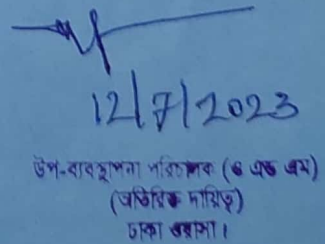 12/7/2023
উপ-ব্যবস্থাপনা পরিচালক (ও এন্ড এম)
(অতিরিক্ত দায়িত্ব)
ঢাকা ওয়াসা।